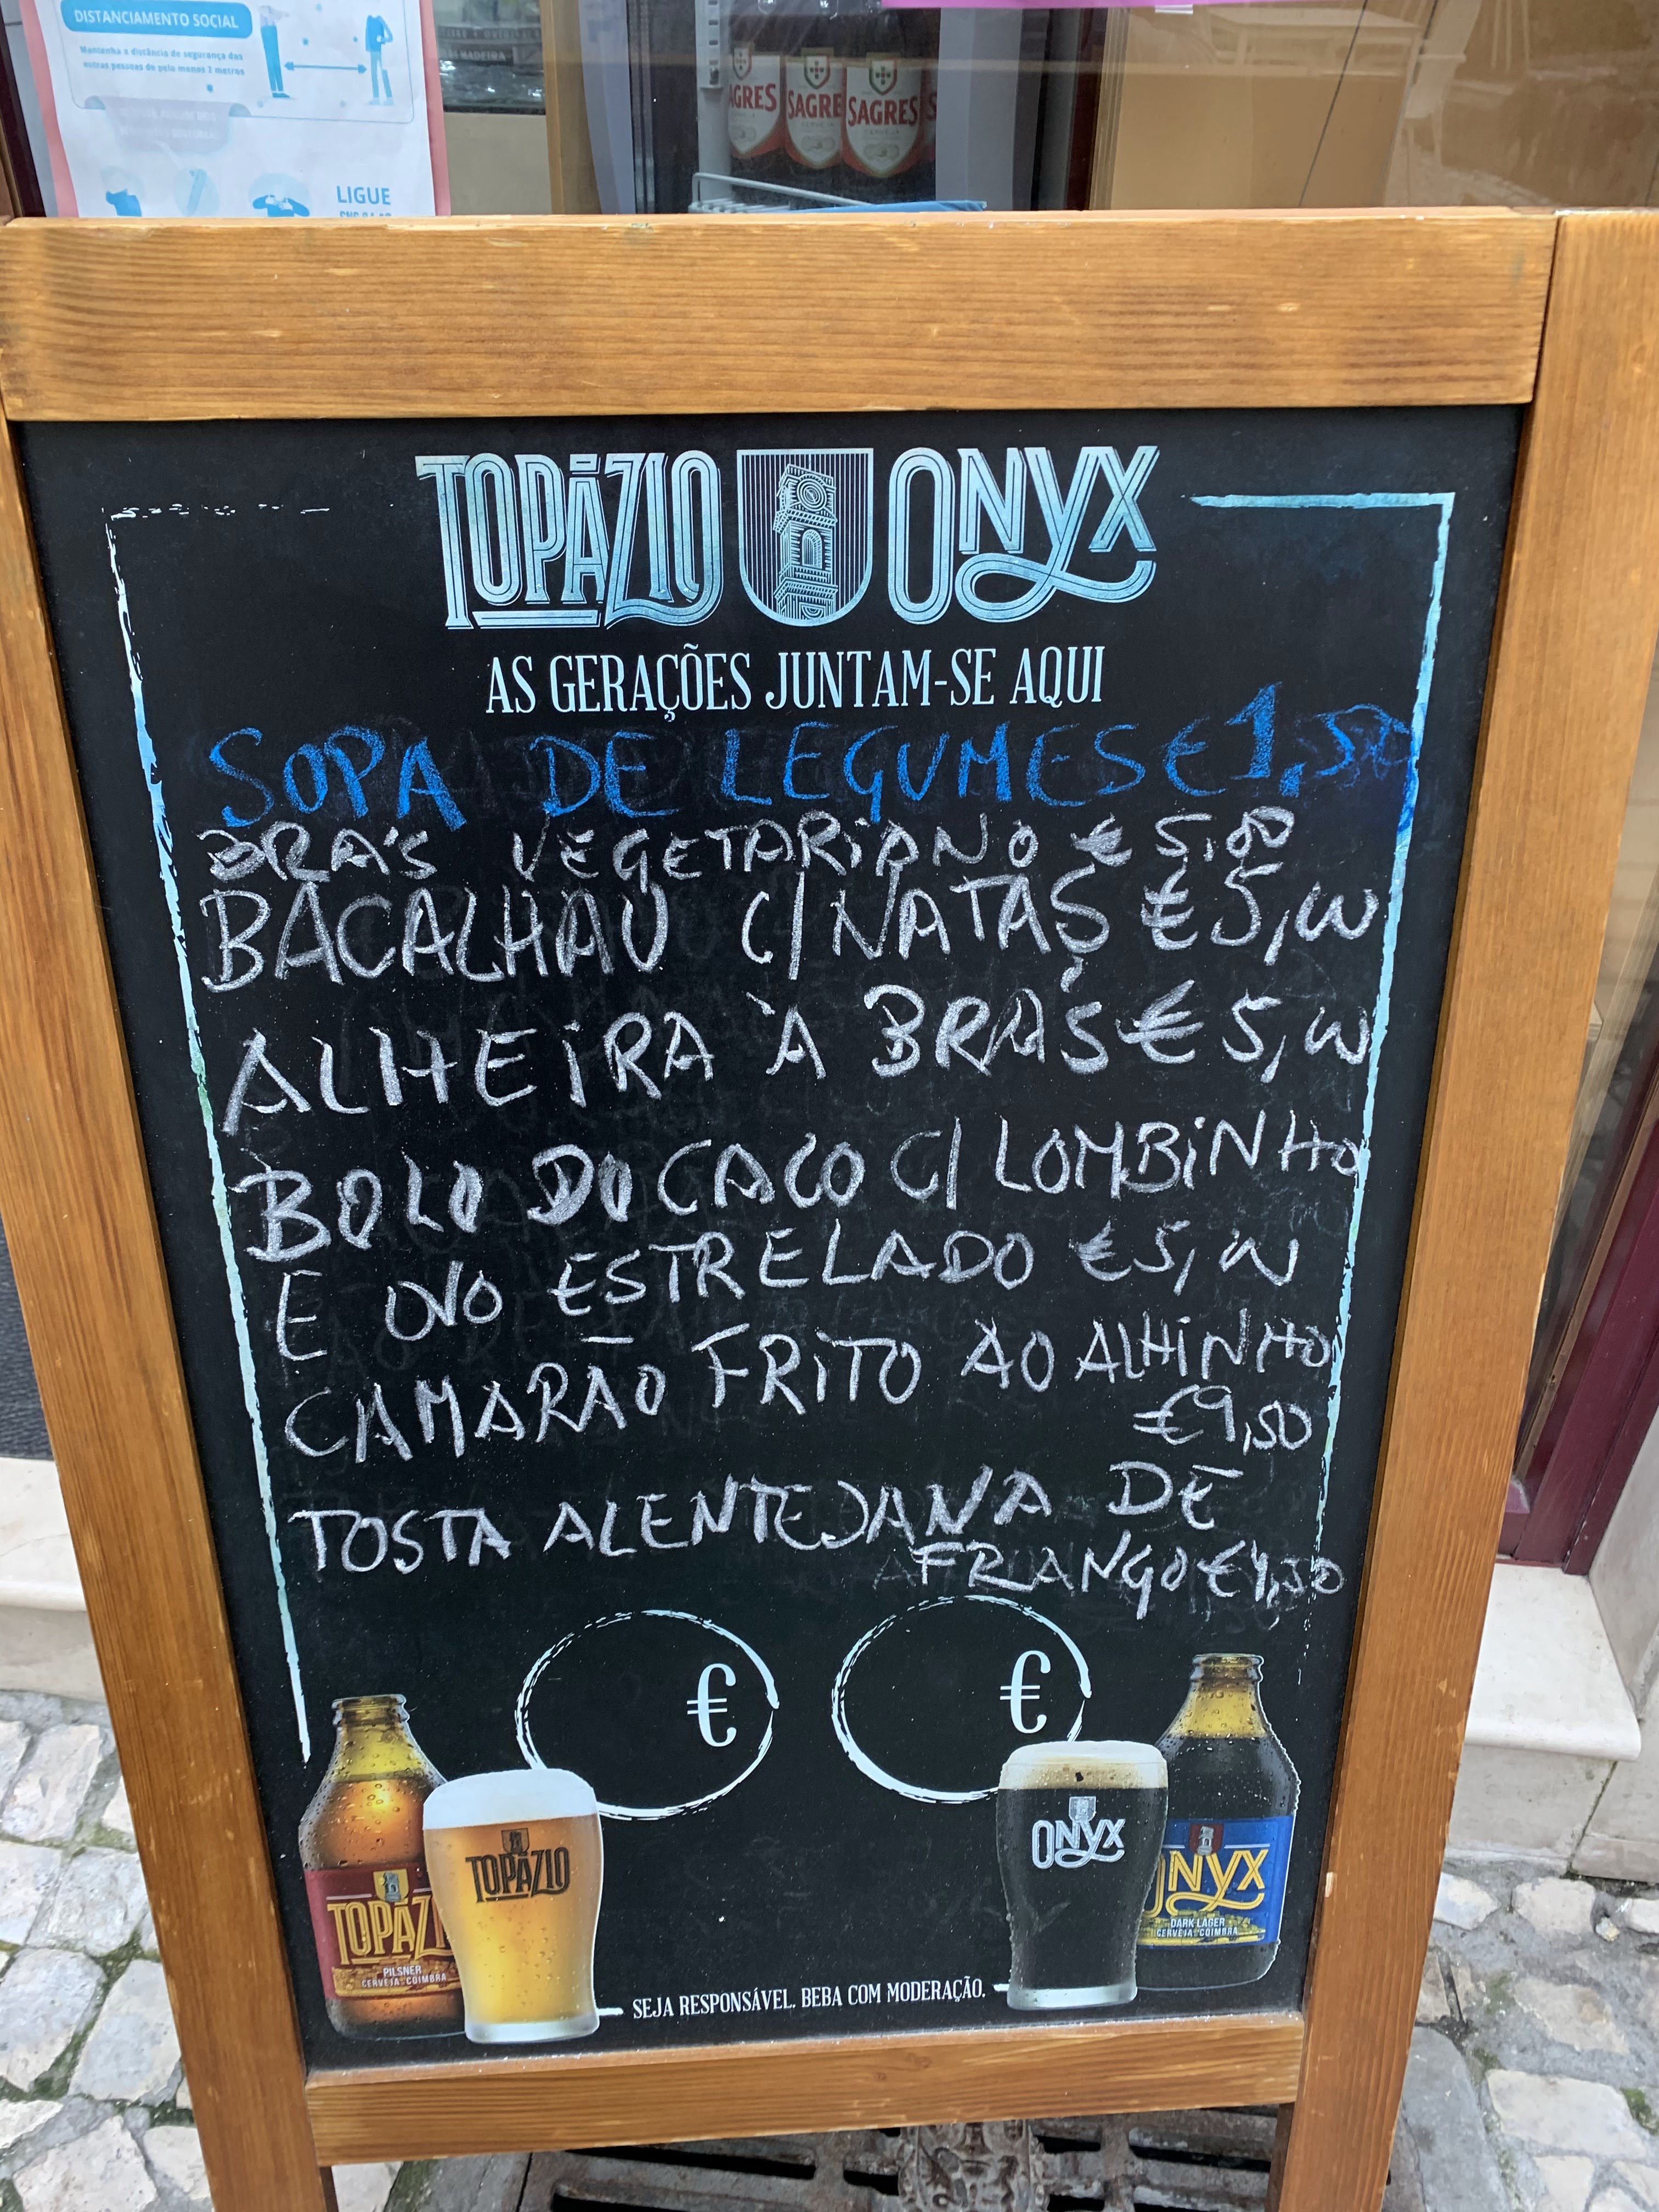 DISTANCIAMENTO SOCIAL
Mantenha a distância de segurança das
outras pessoas de pelo menos 2 metros
LIGUE
MADEIRA
AGRES SAGRE SAGRES S
CERVEJA
TOPÁZIO ONYX
AS GERAÇÕES JUNTAM-SE AQUI
SOPA DE LEGUMES € 1,50
BRA'S VEGETARIANO € 5,00
BACALHAU C/ NATAS € 5,00
ALHEIRA À BRÁS € 5,00
BOLO DO CACO C/ LOMBINHO
E OVO ESTRELADO € 5,00
CAMARÃO FRITO AO ALHINHO
€9,50
TOSTA ALENTEJANA DE
FRANGO €4,50
€ €
TOPÁZIO
ONYX
TOPÁZI
PILSNER
CERVEJA COIMBRA
ONYX
DARK LAGER
CERVEJA COIMBRA
SEJA RESPONSÁVEL. BEBA COM MODERAÇÃO.